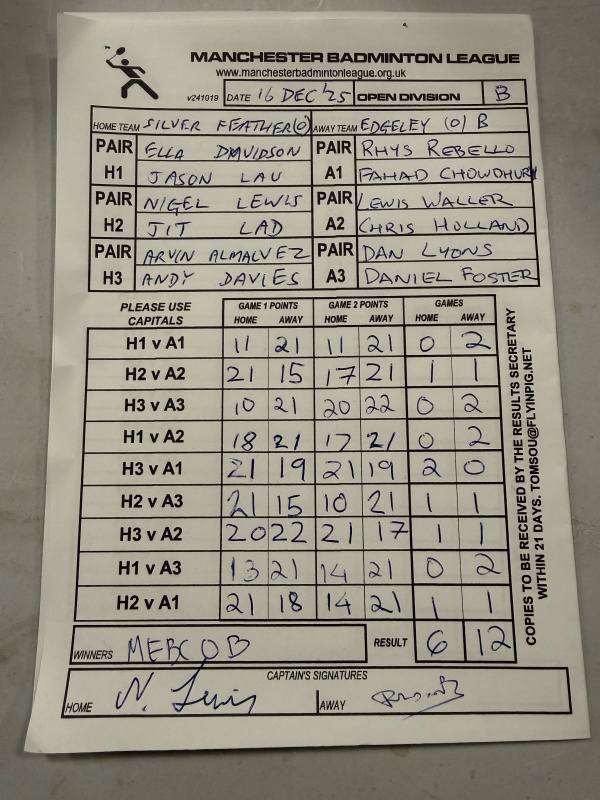 MANCHESTER BADMINTON LEAGUE
www.manchesterbadmintonleague.org.uk
v241019 DATE 16 DEC '25 OPEN DIVISION B
HOME TEAM SILVER FEATHER(O) AWAY TEAM EDGELEY (O) B
PAIR H1 ELLA DAVIDSON PAIR A1 RHYS REBELLO
JASON LAU FAHAD CHOWDHURY
PAIR H2 NIGEL LEWIS PAIR A2 LEWIS WALLER
JIT LAD CHRIS HOLLAND
PAIR H3 ARVIN ALMALVEZ PAIR A3 DAN LYONS
ANDY DAVIES DANIEL FOSTER
PLEASE USE CAPITALS GAME 1 POINTS GAME 2 POINTS GAMES
HOME AWAY HOME AWAY HOME AWAY
H1 v A1 11 21 11 21 0 2
H2 v A2 21 15 17 21 1 1
H3 v A3 10 21 20 22 0 2
H1 v A2 18 21 17 21 0 2
H3 v A1 21 19 21 19 2 0
H2 v A3 21 15 10 21 1 1
H3 v A2 20 22 21 17 1 1
H1 v A3 13 21 14 21 0 2
H2 v A1 21 18 14 21 1 1
WINNERS MEBCOB RESULT 6 12
CAPTAIN'S SIGNATURES
HOME N. Lewis AWAY
COPIES TO BE RECEIVED BY THE RESULTS SECRETARY
WITHIN 21 DAYS. TOMSOU@FLYINPIG.NET